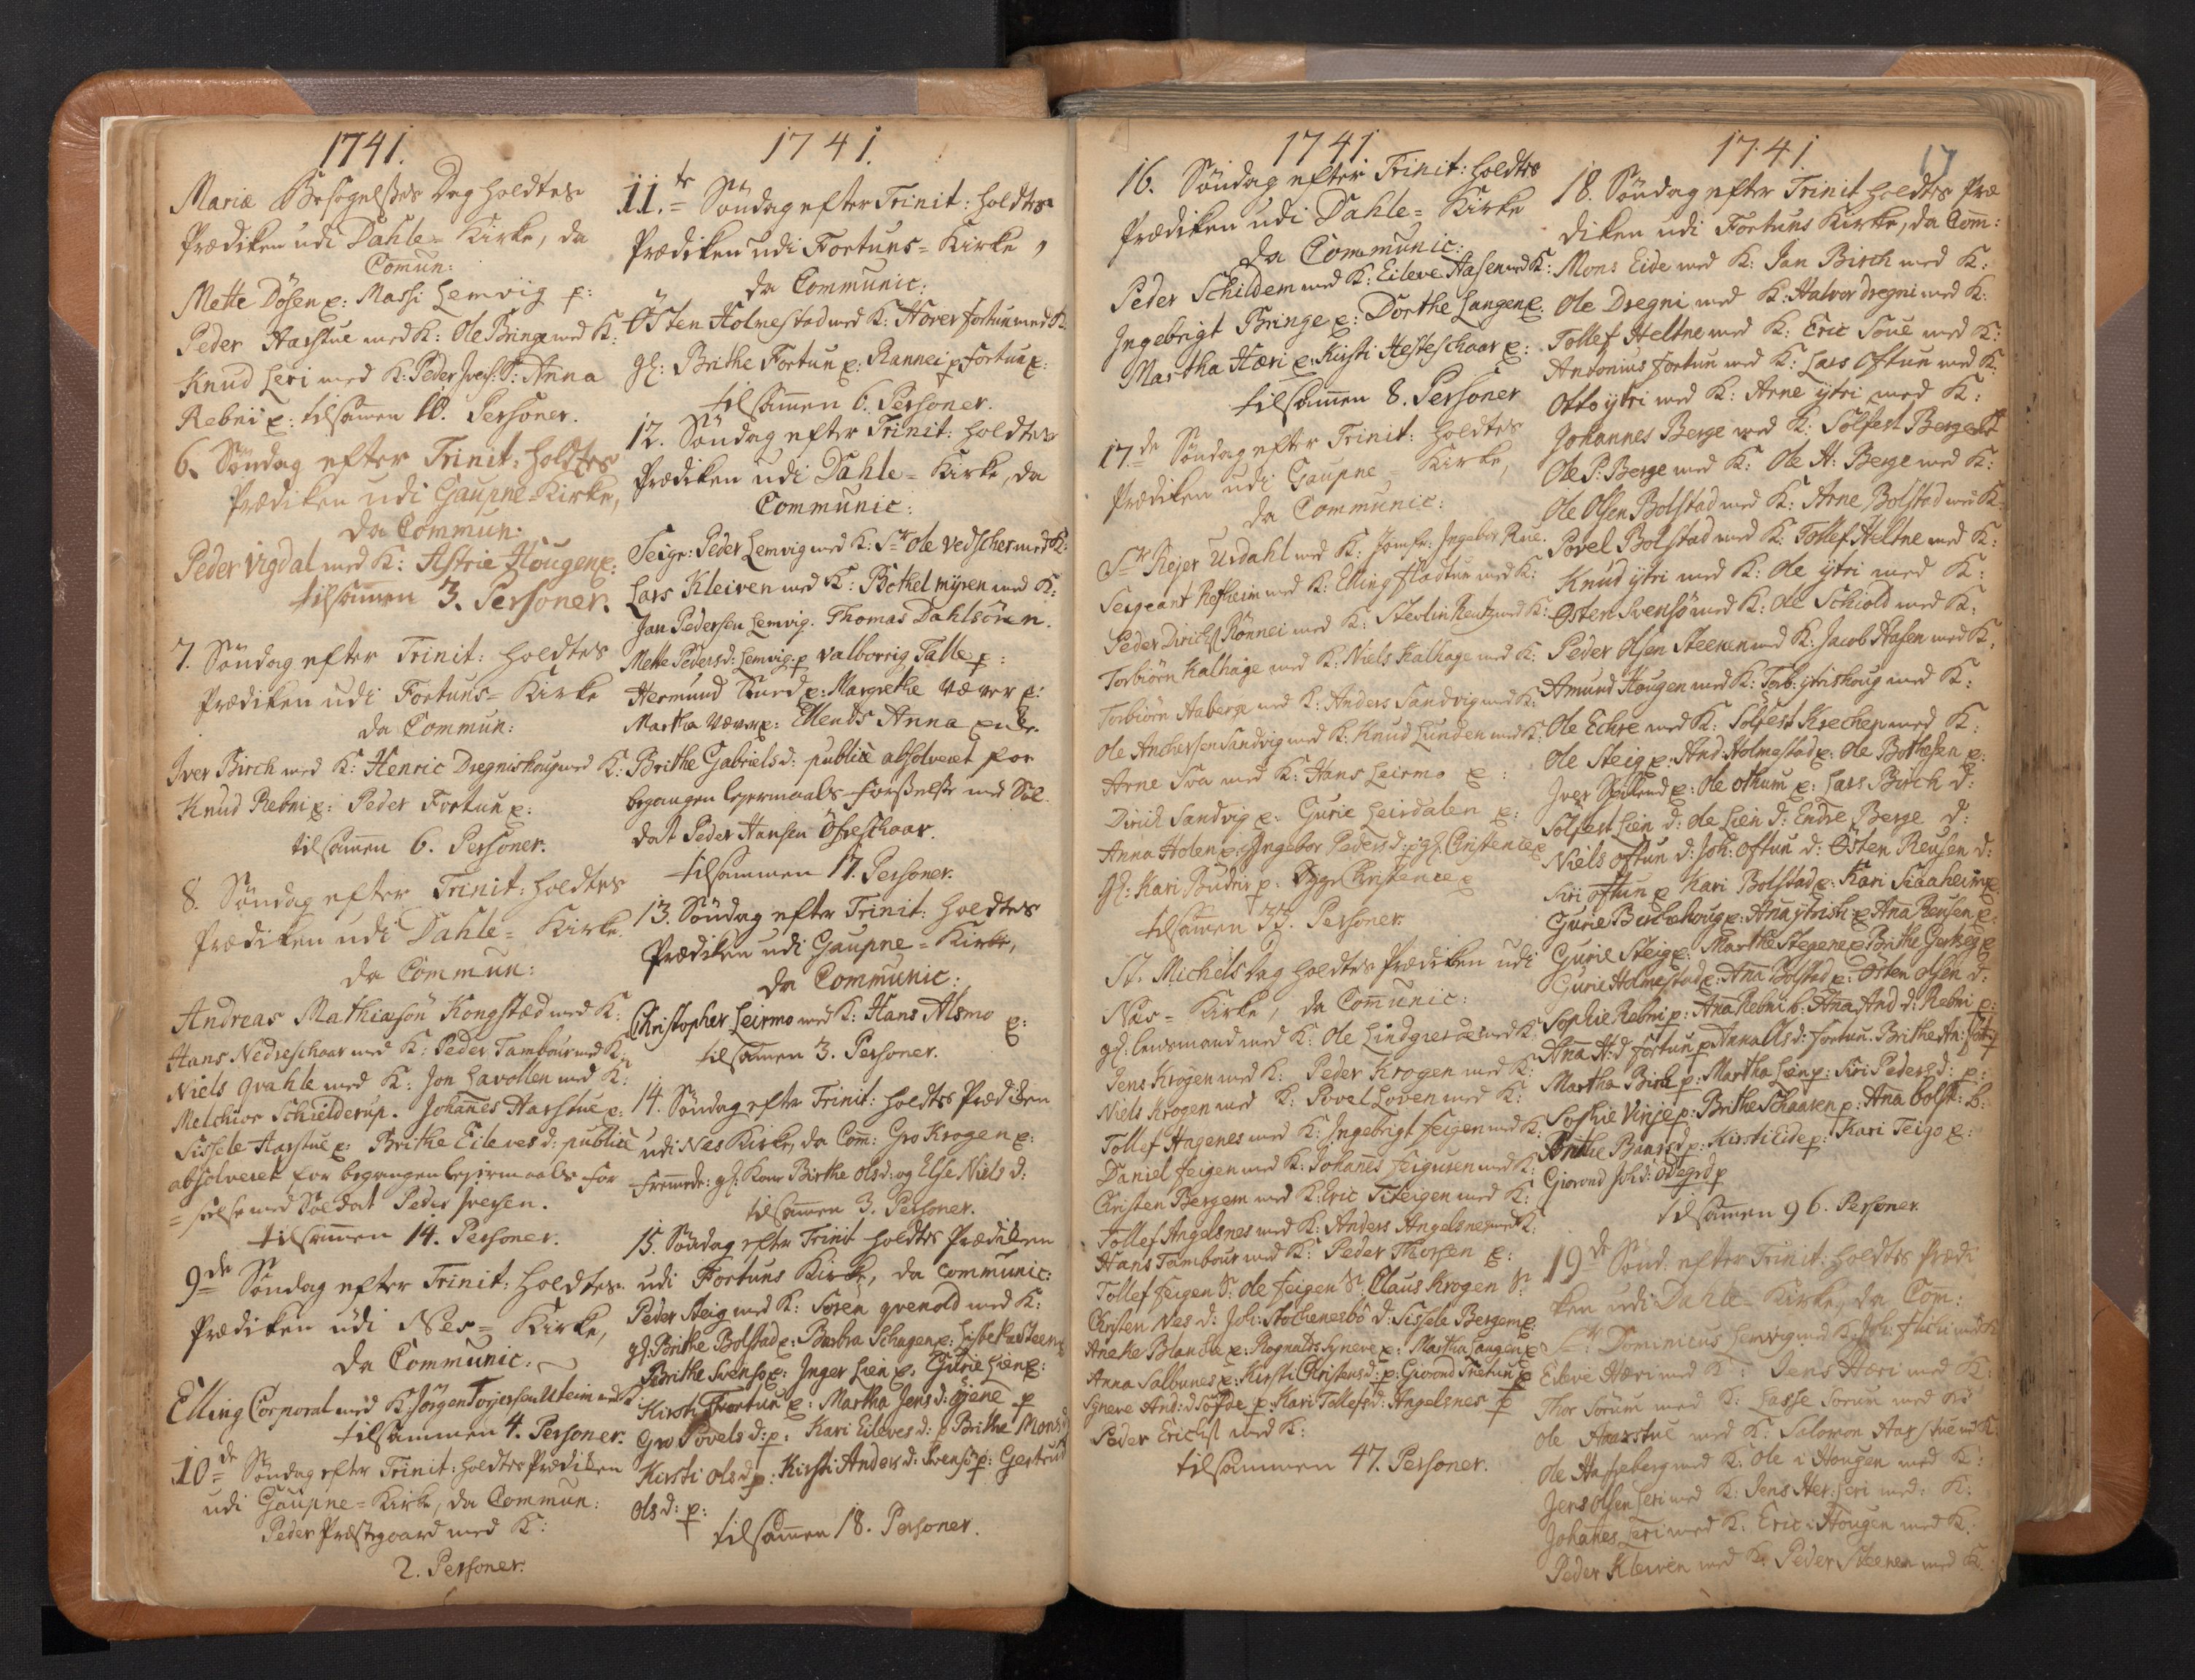 1741.
Mariæ Besøgelsses Dag holdtes
Prædiken udi Dahle= Kirke, da
Comun:
Mette Døsen e: Massi Lemvig p:
Peder Harstue med K: Ole Bringe med K:
Knud Leri med K: Peder Ivers: P: Anna
Rebni e: tilsamen 10. Personer.
6. Søndag efter Trinit: holdtes
Prædiken udi Gaupne-Kirke,
da Commun:
Peder Vigdal med K: Astrie Hougen e:
tilsamen 3. Personer.
7. Søndag efter Trinit: holdtes
Prædiken udi Fortuns= Kirke
da Commun:
Iver Birch med K: Henric Dregnishoug med K:
Knud Rebni e: Peder Fortun e:
tilsamen 6. Personer.
8. Søndag efter Trinit: holdtes
Prædiken udi Dahle= Kirke.
da Commun:
Andreas Mathiasøn Kongstæd med K:
Hans Nedreschaar med K: Peder Tambour med K:
Niels Qvahle med K: Jon Havollen med K:
Melchior Schielderup. Johanes Harstue e:
Sissele Harstue e: Brithe Eilevesd: publicè
absolveret for begangen lejermaals for
=seelse med Soldat Peder Iversen.
tilsamen 14. Personer.
9de Søndag efter Trinit: holdtes
Prædiken udi Nes= Kirke,
da Communic:
Elling Corporal med K: Jørgen Torjersen Usteim med K:
tilsammen 4. Personer.
10de Søndag efter Trinit: holdtes Prædiken
udi Gaupne=Kirke, da Commun:
Peder Præstegaard med K:
2. Personer.
1741.
11.te Søndag efter Trinit: holdtes
Prædiken udi Fortuns= Kirke,
da Communic:
Östen Holmestad med K: Hover Fortun med K:
gl: Brithe Fortun e: Rannei Fortun e:
tilsamen 6. Personer.
12. Søndag efter Trinit: holdtes
Prædiken udi Dahle= Kirke, da
Communic:
Serge: Peder Lemvig med K: Sr Ole Vedscher med K:
Lars Kleiven med K: Botkel myren med K:
Jan Pedersen Lemvig. Thomas Dahlsören.
Mette Pedersd: Lemvig. p Valborrig Talle p:
Hermund e: Margrethe Værer e:
Martha Værer e: Ellends Anna enke.
Brithe Gabrielsd: publicè absolveret for
begangen lejermaals forseelse med Sol-
dat Peder Hansen Öfreschaar.
tilsammen 17. Personer.
13. Søndag efter Trinit: holdtes
Prædiken udi Gaupne= Kirke,
da Communic:
Christopher Leirmo med K: Hans Alsmo e:
tilsamen 3. Personer.
14. Søndag efter Trinit: holdtes Prædiken
udi Nes Kirke, da Com: Gro Krogen e:
fremede: gl: Kone Birthe Olsd: og Else Niels d:
tilsamen 3. Personer.
15. Søndag efter Trinit holdtes Prædiken
udi Fortuns Kirke, da communic:
Peder Steig med K: Søren qvenold med K:
gl: Brithe Bolstad e: Barbra Schagen e: Lisbetha Steen e
Brithe Svensø e: Inger Lien e: Gurie Lien e:
Kirsti Fortun e: Martha Jensd: p
Gro Povelsd: p: Kari Eilevesd: p Brithe Monsd
Kirsti Olsd p: Kirsti Andersd: Svensø p: Gertrud
Olsd: p:
tilsamen 18. Personer.
1741
16. Søndag efter Trinit: holdtes
Prædiken udi Dahle= Kirke
da Communic:
Peder Schildem med K: Eileve Aasen med K:
Ingebrigt Bringe e: Dorthe Langen e:
Martha Hæri e: Kirsti Hesteschaar e:
tilsamen 8. Personer
17.de Søndag efter Trinit: holdtes
Prædiken udi Gaupne= Kirke,
da Communic:
Sr Rejer Urdahl med K: Jomfr: Ingebor Rue.
Sergeant Refheim med K: Elling Fladtun med K:
Peder Dirichs Rönnei med K: Stevlin Reutz med K:
Torbiörn Kalhage med K: Niels Kalhage med K:
Torbiörn Aaberge med K: Anders Sandvig med K:
Ole Andersen Sandvig med K: Knud Lunden med K:
Arne Sva med K: Hans Leirmo e:
Dirich Sandvig e: Gurie Leirdalen e:
Anna Holen e: Ingebor Pedersd: p gl: Christence e
gl: Kari Budrii p. Christence e
tilsamen 33. Personer.
St. Michels dag holdtes Prædiken udi
Nes= Kirke, da Comunic:
gl: lensmand med K: Ole Lindgreen med K:
Jens Krogen med K: Peder Krogen med K:
Niels Krogen med K: Povel Loven med K:
Tollef Hagenes med K: Ingebrigt Feigen med K:
Daniel Feigen med K: Johanes Feigusen med K:
Christen Bergem med K: Eric Feigen med K:
Tollef Angelsnes med K: Anders Angelsnes med K:
Hans Tambour med K: Peder Thorsen e:
Tollef Feigen S: Ole Feigen S: Claus Krogen S:
Christen Nes d: Joh: Stochenesbö d: Sissele Bergem e:
Aneke Blancke e: Rognalds Syneve e: Martha Haugen e
Anna Salbunes e: Kirsti Christensd: p: Giørond Frietun p
Syneve And: d Sofde p: Kari Tollefsd: Angelsnes p
Peder Erichs: med K:
tilsammen 47. Personer.
1741
17
18. Søndag efter Trinit holdtes Præ
diken udi Fortuns Kirke, da Com:
Mons Eide med K: Jan Birch med K:
Ole Dregni med K: Halvor Dregni med K:
Tollef Heltne med K: Eric Soue med K:
Antonius Fortun med K: Lars Oftun med K:
Otto ÿtri med K: Arne ÿtri med K:
Johannes Berge med K: Solfest Berge med K
Ole P: Berge med K: Ole A: Berge med K:
Ole Olsen Bolstad med K: Arne Bolstad med K:
Povel Bolstad med K: Tollef Heltne med K:
Knud ÿtri med K: Ole ÿtri med K:
Østen Svensö med K: Ole Schiold med K:
Peder Olsen Steenen med K: Jacob Aasen med K,
Amund Hougen med K: Torb: ÿtrishoug med K:
Ole Echre med K: Solfest Kreeken med K:
Ole Steig e: And: Holmestad e: Ole Bothesen e:
Iver e: Ole Othum e: Lars Birch d:
Solfest Lien d: Ole Lien d: Endre Berge d:
Niels Oftun d: Joh: Oftun d: Østen Reusen d:
Siri Oftun e Kari Bolstad e: Kari Skaaheim e:
Gurie e: Ana ÿtrish: e Ana Reusen e:
Gurie Steig e: Marthe Stegene e Brithe Gerhes e
Gurie Holmestad e: Ana Bolstad e: Østen Olsen d:
Sophie Rebni p: Ana Rebni b: Ana And d: Rebni p:
Ana A: d Fortun p Anna Olsd: Fortun. Brithe
Martha Birch p: Martha Lien p: Siri Pedersd: p:
Sophie Vinje p: Brithe Schaaren p: Ana bolst: b:
Brithe p: Kirsti Eide p: Kari Teigo e:
Giørond Joh d: p
tilsamen 96. Personer.
19de Sønd. efter Trinit: holdtes Prædi
ken udi Dahle= Kirke, da Com:
Sr: Dominicus Lemvig med K: Joh: med K
Eileve Hæri med K: Jens Hæri med K:
Thor Sorum med K: Lasse Sorum med K:
Ole Harstue med K: Salomon Harstue med K:
Ole Hasseberg med K: Ole i Hougen med K:
Jens Olsen Leri med K: Jens Her: Leri med: K:
Johanes Leri med K: Eric i Hougen med K:
Peder Kleiven med K: Peder Steenen med K: